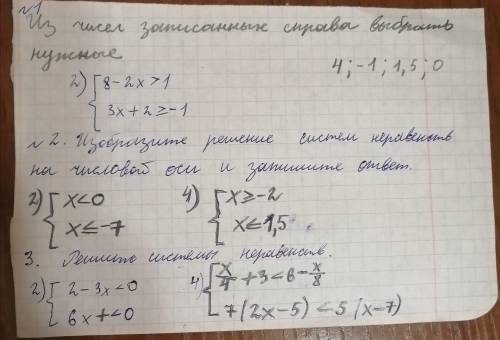 №1
Из чисел записанных справа выбрать
нужные
4; -1; 1,5; 0
2) { 8-2x>1
3x+2≥-1
№2. Изобразите решение систем неравенств
на числовой оси и запишите ответ.
2) { x<0
x≤-7
4) { x≥-2
x≤1,5
3. Решить системы неравенств.
2) { 2-3x<0
6x+<0
4) { x/4 +3<6-x/8
7(2x-5)<5(x-7)